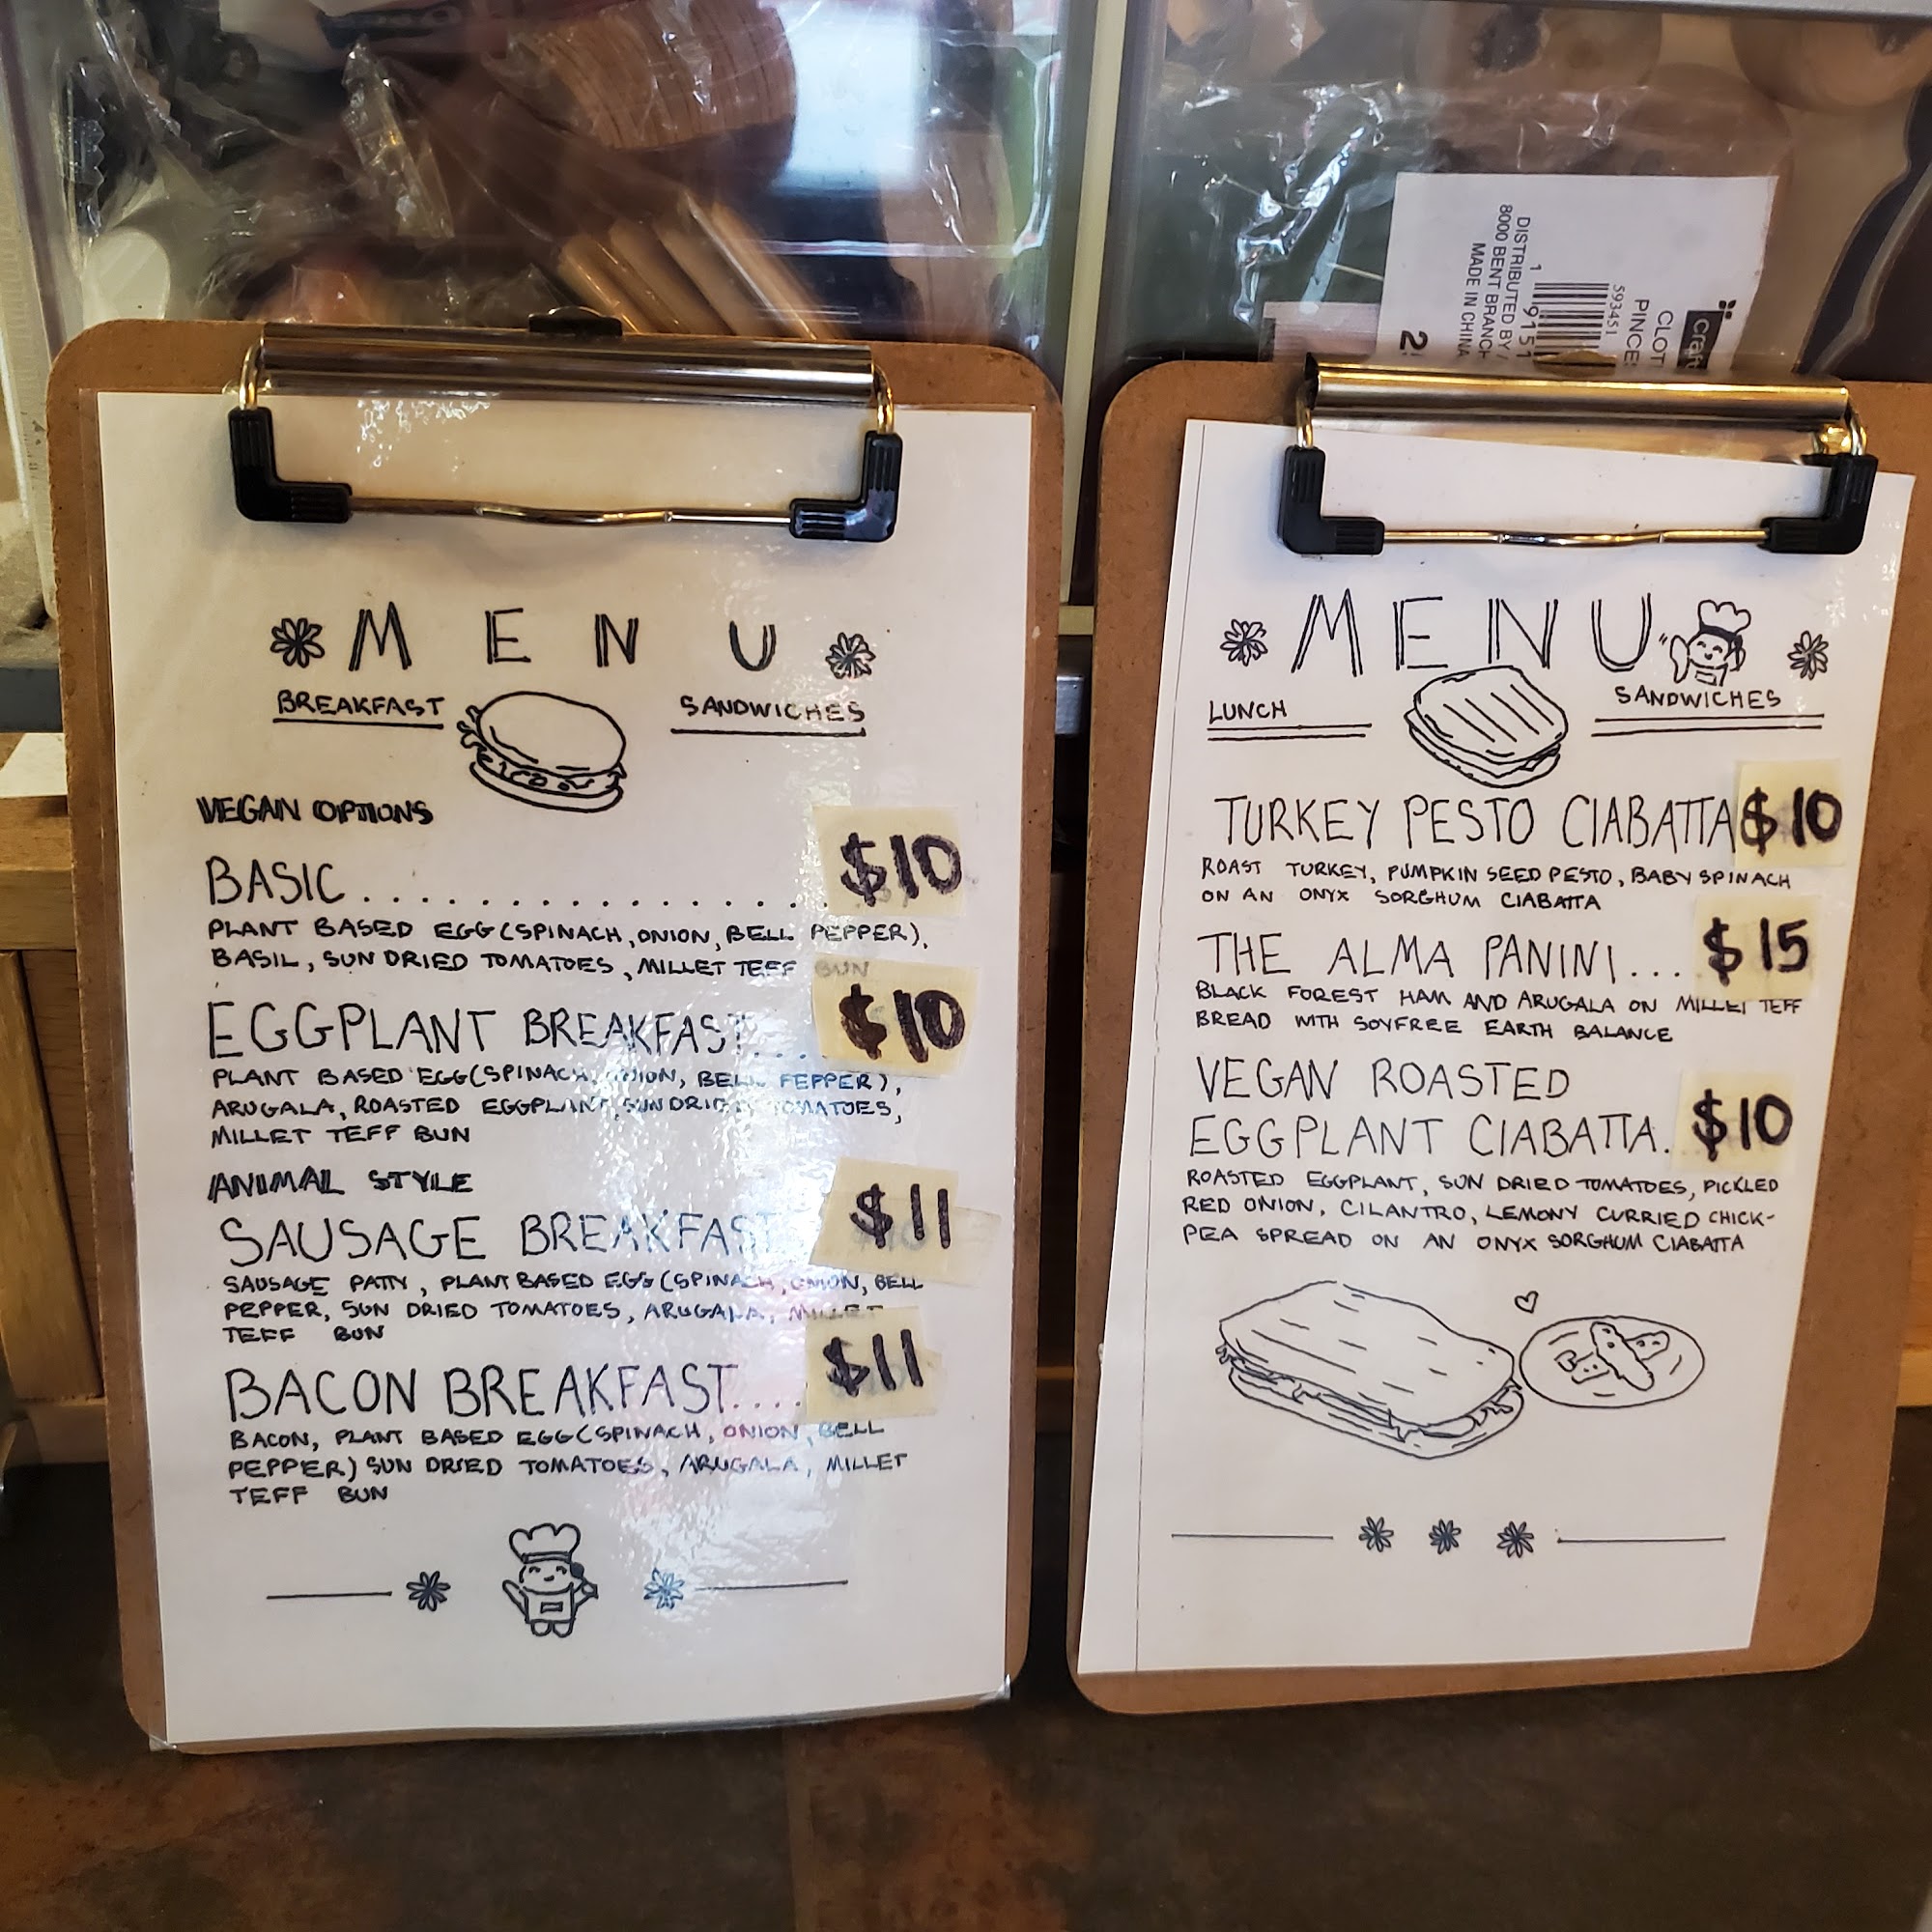 MENU
BREAKFAST SANDWICHES
VEGAN OPTIONS
BASIC.................. $10
PLANT BASED EGG (SPINACH, ONION, BELL PEPPER),
BASIL, SUN DRIED TOMATOES, MILLET TEFF BUN
EGGPLANT BREAKFAST.... $10
PLANT BASED EGG (SPINACH, ONION, BELL PEPPER),
ARUGALA, ROASTED EGGPLANT, SUN DRIED TOMATOES,
MILLET TEFF BUN
ANIMAL STYLE
SAUSAGE BREAKFAST $11
SAUSAGE PATTY, PLANT BASED EGG (SPINACH, ONION, BELL
PEPPER, SUN DRIED TOMATOES, ARUGALA, MILLET
TEFF BUN
BACON BREAKFAST.... $11
BACON, PLANT BASED EGG (SPINACH, ONION, BELL
PEPPER) SUN DRIED TOMATOES, ARUGALA, MILLET
TEFF BUN
MENU
LUNCH SANDWICHES
TURKEY PESTO CIABATTA $10
ROAST TURKEY, PUMPKIN SEED PESTO, BABY SPINACH
ON AN ONYX SORGHUM CIABATTA
THE ALMA PANINI... $15
BLACK FOREST HAM AND ARUGALA ON MILLET TEFF
BREAD WITH SOYFREE EARTH BALANCE
VEGAN ROASTED
EGGPLANT CIABATTA. $10
ROASTED EGGPLANT, SUN DRIED TOMATOES, PICKLED
RED ONION, CILANTRO, LEMONY CURRIED CHICK-
PEA SPREAD ON AN ONYX SORGHUM CIABATTA
CLOT
PINCE
593451
1 9151
DISTRIBUTED BY
8000 BENT BRANCH
MADE IN CHINA
2